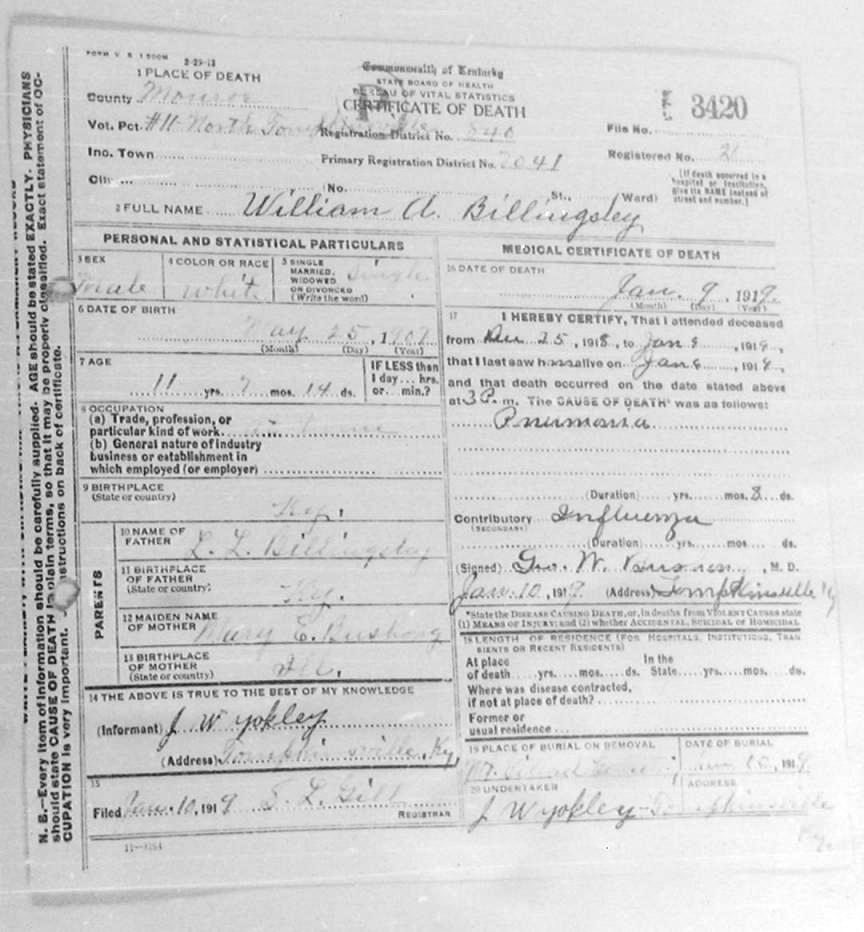 FORM V. S. 1 500M 2-29-12
1 PLACE OF DEATH
County Monroe
Vot. Pct. #11 North
Inc. Town
City
Commonwealth of Kentucky
STATE BOARD OF HEALTH
BUREAU OF VITAL STATISTICS
CERTIFICATE OF DEATH
Registration District No. 840
Primary Registration District No. 7041
(No. St., Ward)
3420
File No.
Registered No.
[If death occurred in a
hospital or institution,
give its NAME instead of
street and number.]
2 FULL NAME William A. Billingsley
PERSONAL AND STATISTICAL PARTICULARS
3 SEX
Male
4 COLOR OR RACE
White
5 SINGLE
MARRIED,
WIDOWED
OR DIVORCED
(Write the word)
Single
6 DATE OF BIRTH
May 25, 1907
(Month) (Day) (Year)
7 AGE
11 yrs. 7 mos. 14 ds.
IF LESS than
1 day... hrs.
or... min.?
8 OCCUPATION
(a) Trade, profession, or
particular kind of work
(b) General nature of industry
business or establishment in
which employed (or employer)
9 BIRTHPLACE
(State or country)
Ky.
PARENTS
10 NAME OF
FATHER
L. L. Billingsley
11 BIRTHPLACE
OF FATHER
(State or country)
Ky.
12 MAIDEN NAME
OF MOTHER
Mary E. Bushong
13 BIRTHPLACE
OF MOTHER
(State or country)
Ill.
14 THE ABOVE IS TRUE TO THE BEST OF MY KNOWLEDGE
(Informant) J W Yokley
(Address) Tompkinsville, Ky
15
Filed Jan. 10, 1919 S. L. Gill
REGISTRAR
11-3164
MEDICAL CERTIFICATE OF DEATH
16 DATE OF DEATH
Jan. 9, 1919.
(Month) (Day) (Year)
17 I HEREBY CERTIFY, That I attended deceased
from Dec 25, 1918, to Jan 8, 1919,
that I last saw him alive on Jan 8, 191
and that death occurred on the date stated above
at 3 P. m. The CAUSE OF DEATH* was as follows:
Pneumonia
(Duration) yrs. mos. 8 ds.
Contributory Influenza
(SECONDARY)
(Duration) yrs. mos. ds.
(Signed) Geo. W. , M. D.
Jan. 10, 1919. (Address) Tompkinsville Ky
*State the DISEASE CAUSING DEATH, or, in deaths from VIOLENT CAUSES state
(1) MEANS OF INJURY; and (2) whether ACCIDENTAL, SUICIDAL OR HOMICIDAL
18 LENGTH OF RESIDENCE (FOR HOSPITALS, INSTITUTIONS, TRAN
SIENTS OR RECENT RESIDENTS)
At place In the
of death yrs. mos. ds. State yrs. mos. ds.
Where was disease contracted,
if not at place of death?
Former or
usual residence
19 PLACE OF BURIAL OR REMOVAL
DATE OF BURIAL
Jan 10, 1919.
20 UNDERTAKER
J W Yokley
ADDRESS
Tompkinsville
Ky.
N. B.—Every item of information should be carefully supplied. AGE should be stated EXACTLY. PHYSICIANS
should state CAUSE OF DEATH in plain terms, so that it may be properly classified. Exact statement of OC-
CUPATION is very important. instructions on back of certificate.